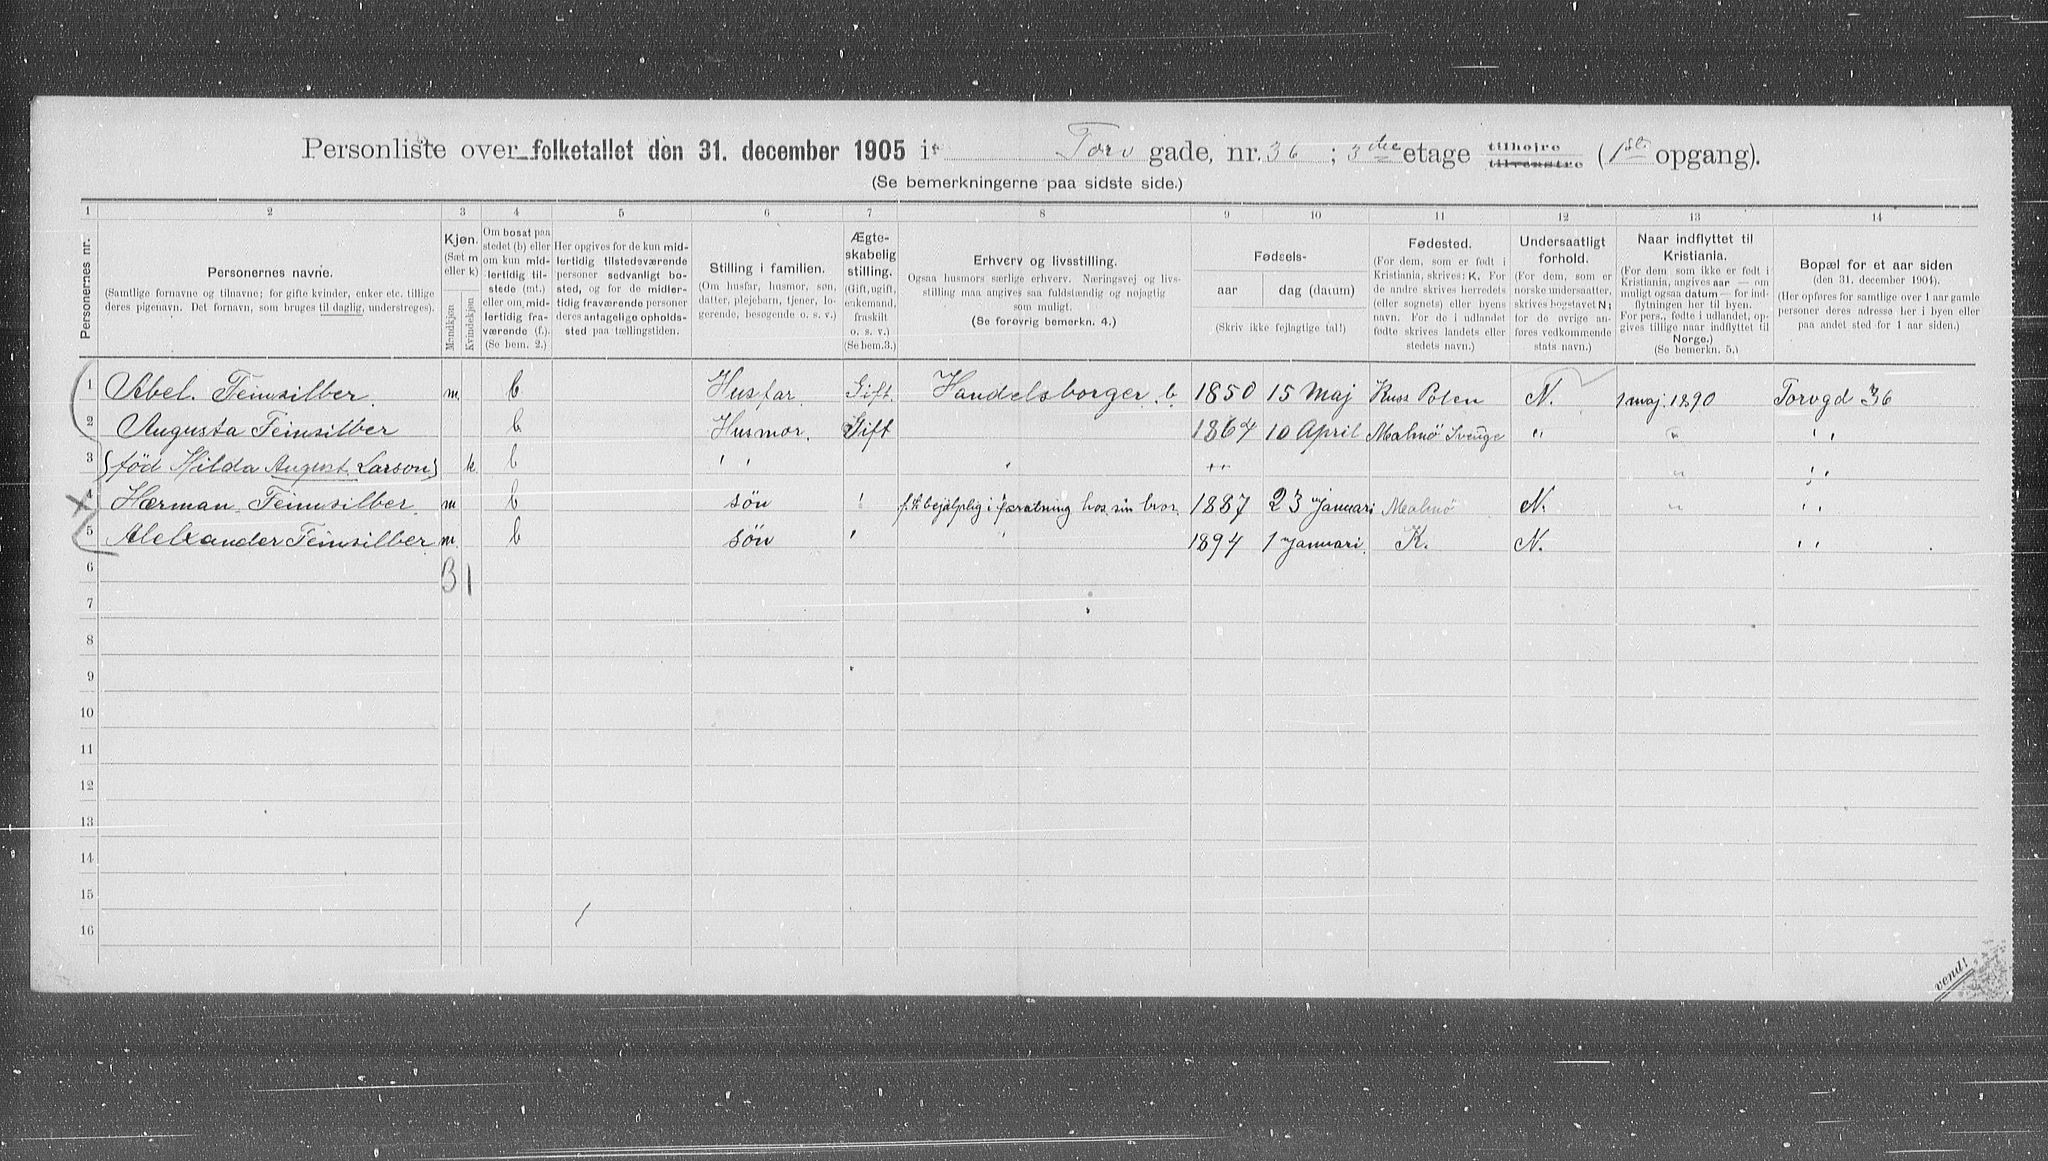 Personliste over folketallet den 31. december 1905 i Torv gade, nr. 36 ; 3die etage tilhøjre tilvenstre (1ste opgang).
(Se bemerkningerne paa sidste side.)
1 2 3 4 5 6 7 8 9 10 11 12 13 14
Personernes nr.
Personernes navne.
(Samtlige fornavne og tilnavne; for gifte kvinder, enker etc. tillige
deres pigenavn. Det fornavn, som bruges til daglig, understreges).
Kjøn.
(Sæt m
eller k)
Mandkjøn
Kvindekjøn
Om bosat paa
stedet (b) eller
om kun mid-
lertidig til-
stede (mt.)
eller om mid-
lertidig fra-
værende (f.).
(Se bem. 2.)
Her opgives for de kun mid-
lertidig tilstedsværende
personer sedvanlig bo-
sted, og for de midler-
tidig fraværende personer
deres antagelige opholds-
sted paa tællingstiden.
Stilling i familien.
(Om husfar, husmor, søn,
datter, plejebarn, tjener, lo-
gerende, besøgende o. s. v.)
Ægte-
skabelig
stilling.
(Gift, ugift,
enkemand,
fraskilt
o. s. v.)
(Se bem.3.)
Erhverv og livsstilling.
Ogsaa husmors særlige erhverv. Næringsvej og livs-
stilling maa angives saa fuldstændig og nøjagtig
som muligt.
(Se forøvrig bemerkn. 4.)
Fødsels-
aar dag (datum)
(Skriv ikke fejlagtige tal!)
Fødested.
(For dem, som er født i
Kristiania, skrives: K. For
de andre skrives herredets
(eller sognets) eller byens
navn. For de i udlandet
fødte skrives landets eller
stedets navn.)
Undersaatligt
forhold.
(For dem, som er
norske undersaatter,
skrives bogstavet N;
for de øvrige an-
føres vedkommende
stats navn.)
Naar indflyttet til
Kristiania.
(For dem, som ikke er født i
Kristiania, angives aar — om
muligt ogsaa datum — for ind-
flytningen her til byen.
For pers., fødte i udlandet, op-
gives tillige naar indflyttet til
Norge.)
(Se bemerkn. 5.)
Bopæl for et aar siden
(den 31. december 1904).
(Her opføres for samtlige over 1 aar gamle
personer deres adresse her i byen eller
paa andet sted for 1 aar siden.)
1 Abel. Feinsilber. m. b Husfar. Gift. Handelsborger. b. 1850 15 Maj Russ Polen N. 1 maj. 1890 Torvgd 36
2 Augusta Feinsilber b Husmor. Gift 1867 10 April Malmö Sverige " " "
3 (föd Hilda August. Larson) k. b " " "
4 Herman. Feinsilber. m b søn hos sin bror. 1887 23 januari Malmö N. " "
5 Alelxander Feinsilber m. b søn 1894 1 januari. K. N. "
6 3 1
7
8
9
10
11
12
13
14
15
16
vend!